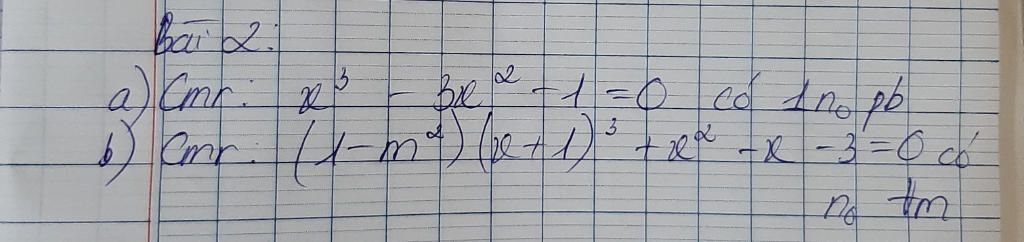 Bài 2:
a) Cmr: x³ - 3x² - 1 = 0 có 1 n₀ pb
b) Cmr: (1 - m²)(x + 1)³ + x² - x - 3 = 0 có
n₀ ∀m